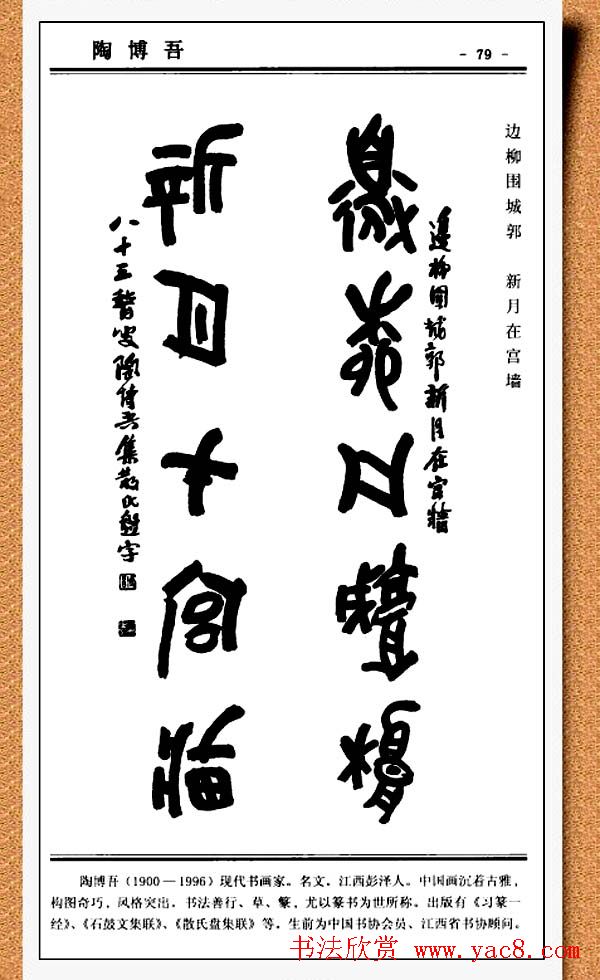 陶博吾
- 79 -
边柳围城郭 新月在宫墙
邊柳囗城郭
邊柳圍城郭新月在宫牆
新月在宫牆
八十三瞽叟陶博吾集散氏盤字
陶博吾（1900—1996）现代书画家。名文。江西彭泽人。中国画沉着古雅，
构图奇巧，风格突出。书法善行、草、篆，尤以篆书为世所称。出版有《习篆一
经》、《石鼓文集联》、《散氏盘集联》等。生前为中国书协会员、江西省书协顾问。
书法欣赏 www.yac8.com